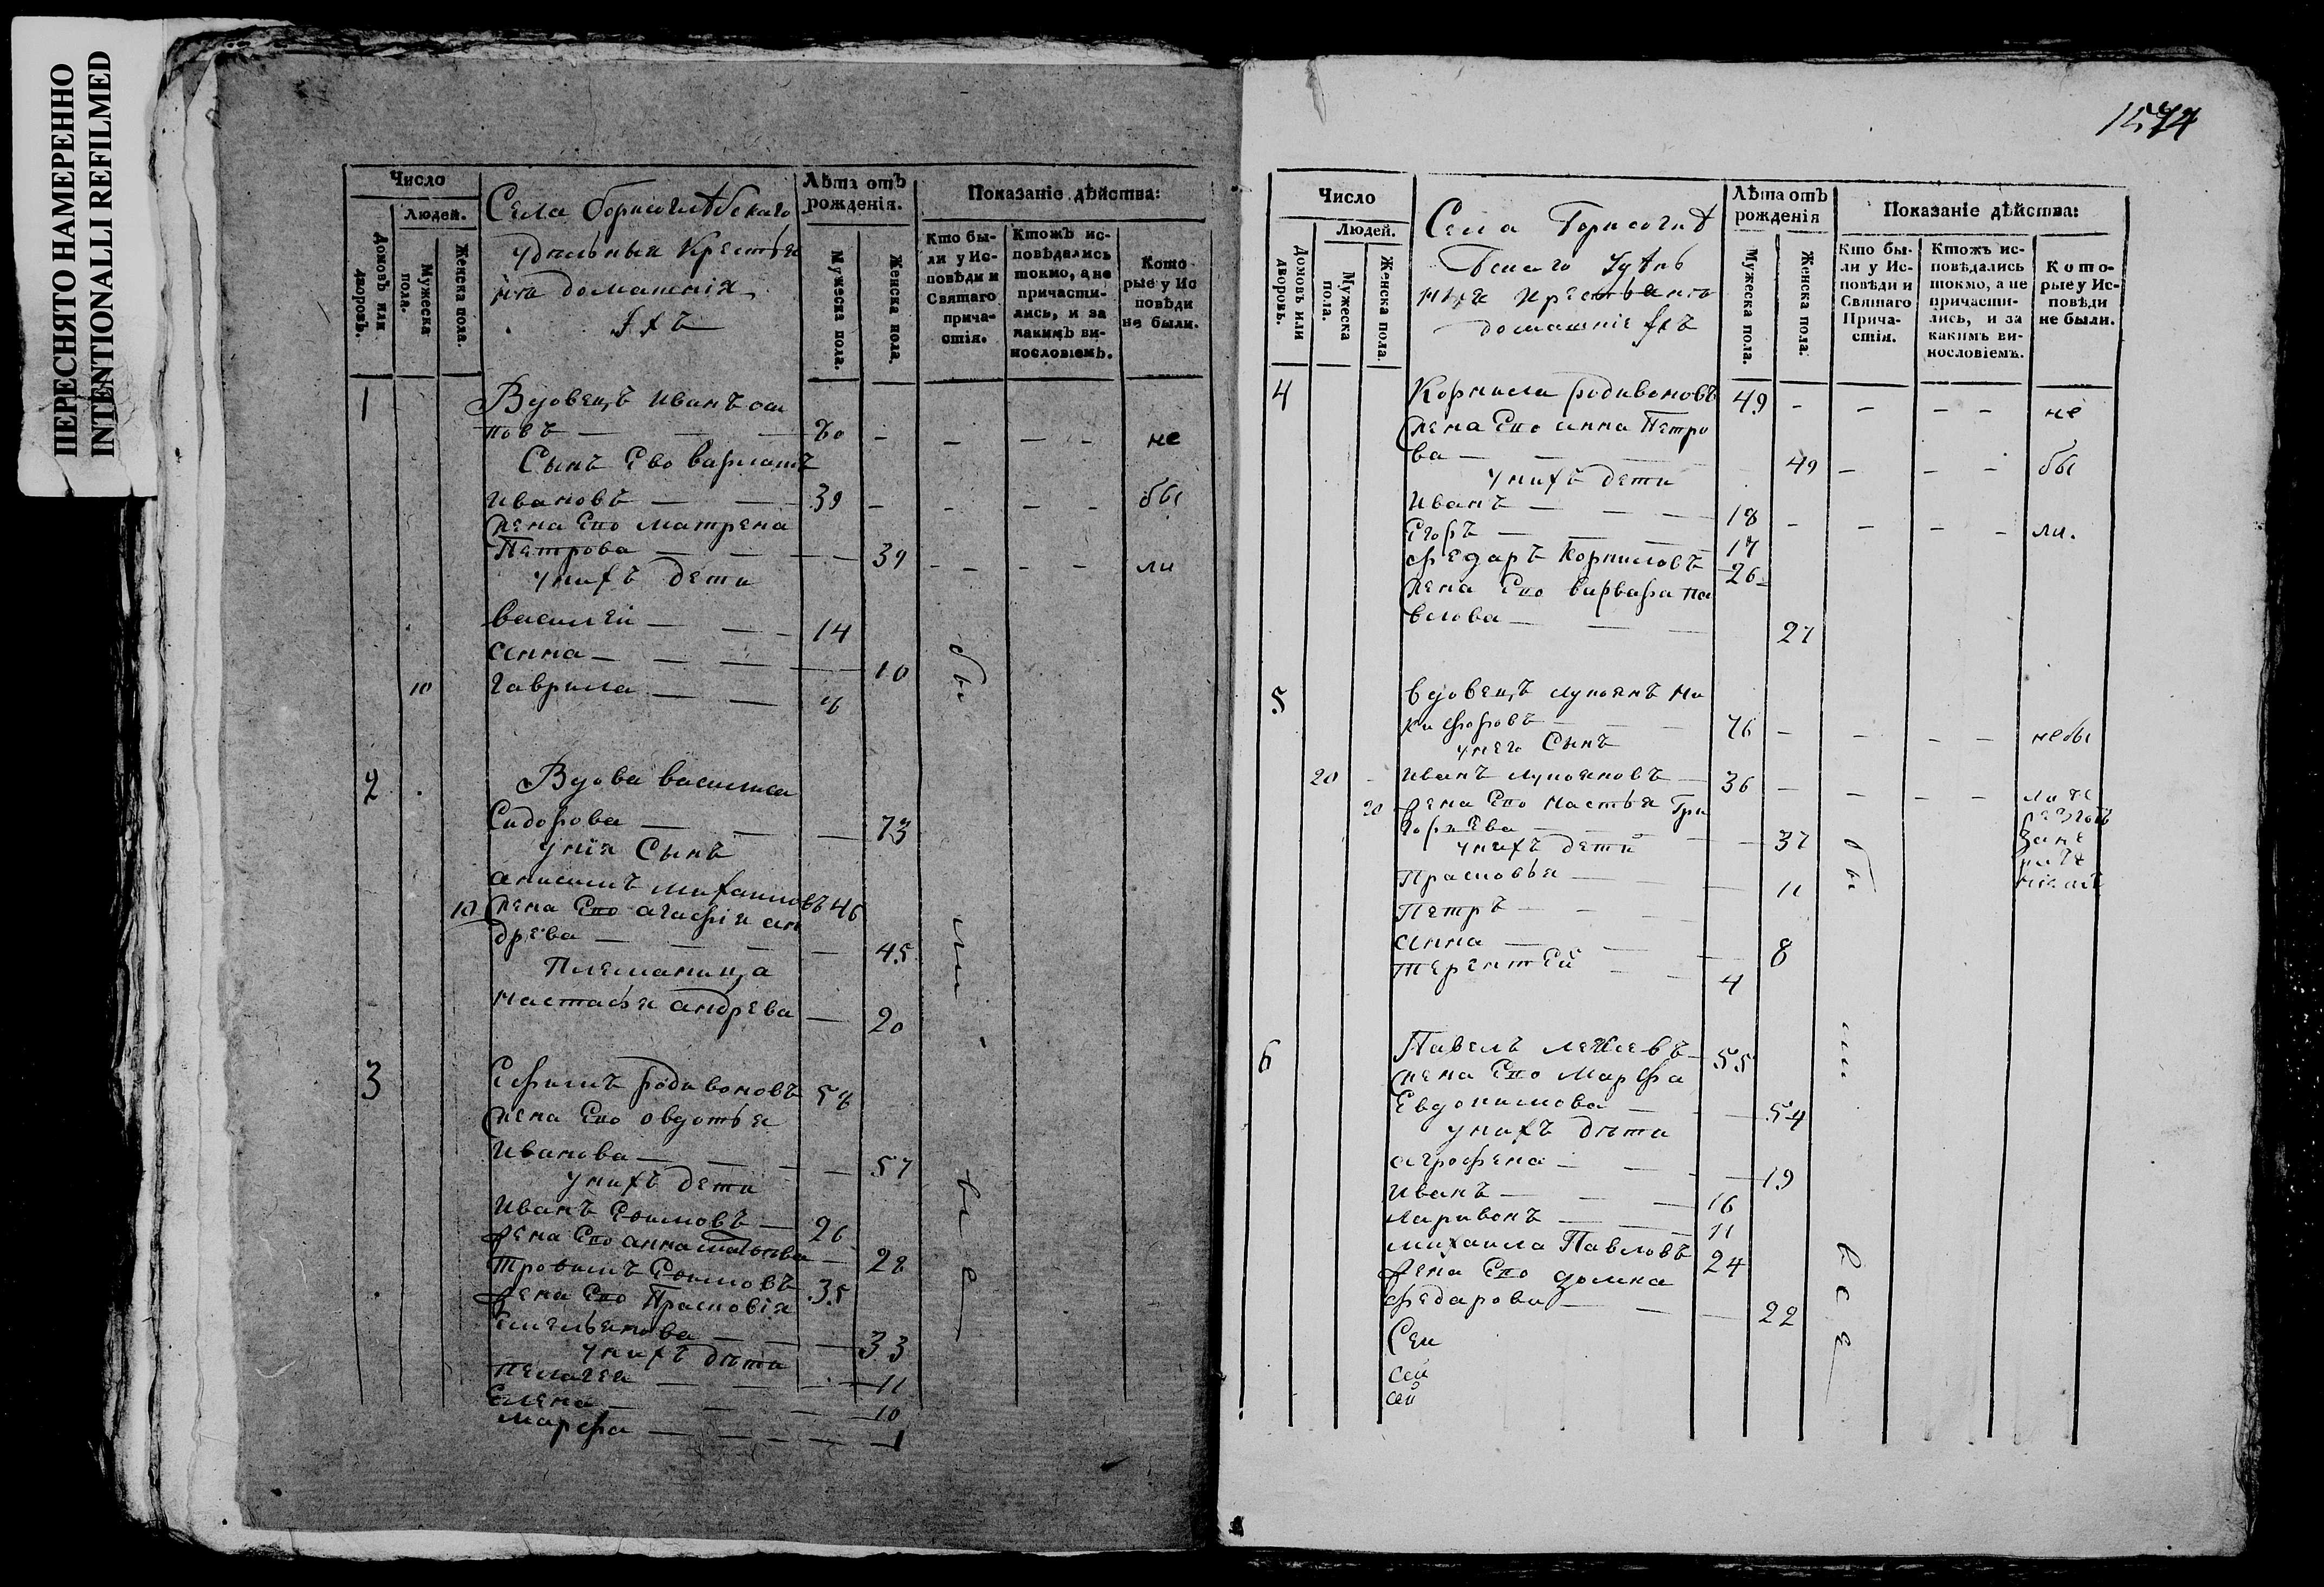 ПЕРЕСНЯТО НАМЕРЕННО
INTENTIONALLI REFILMED
Число
Людей.
Домовъ или дворовъ.
Мужеска пола.
Женска пола.
Села Борисоглѣбскаго
удельныя Крестья
нѣ домашнія
Лѣта отъ
рожденія.
Мужеска пола.
Женска пола.
Показаніе дѣйства:
Кто бы-
ли у Ис-
повѣди и
Святаго
прича-
стія.
Ктожъ ис-
повѣдались
токмо, а не
причасти-
лись, и за
какимъ ви-
нословіемъ.
Кото
рые у Ис
повѣди
не были.
1
Вдовецъ Иванъ оси
повъ — 80 не
Сынъ Ево варламъ
Ивановъ — 39 бы
жена Ево матрена
Петрова — 39 ли
у нихъ дети
василей — 14
анна — 10
10 гаврила —
2 Вдова василиса
Сидорова — 73
у нія Сынъ
анисимъ михаиловъ 46
10 жена Ево агафія ан
древа — 45
Племаница
настасья андрева — 20
3 Ефимъ родивоновъ 58
жена Ево овдотья
Иванова — 57
у нихъ дети
Иванъ Ефимовъ — 26
жена Ево анна — 28
Трофимъ Ефимовъ 35
жена Ево Прасковія
Емельянова — 33
у нихъ дети
пелагея — 11
Елена — 10
марфа — 1
бы
ли
все
1574
Число
Людей.
Домовъ или дворовъ.
Мужеска пола.
Женска пола.
Села Борисоглѣ
бскаго Удѣль
ныя крестьянѣ
домашніе
Лѣта отъ
рожденія
Мужеска пола.
Женска пола.
Показаніе дѣйства:
Кто бы-
ли у Ис-
повѣди и
Святаго
Прича-
стія.
Ктожъ ис-
повѣдались
токмо, а не
причасти-
лись, и за
какимъ ви-
нословіемъ.
Кото-
рые у Ис-
повѣди
не были.
4 Корнила родивоновъ 49 не
жена Ево анна Петро
ва — 49 бы
у нихъ дети
Иванъ — 18
Егоръ — 17 ли.
федаръ Корниловъ 26
жена Ево варвара па
влова — 27
5 вдовецъ лукоянъ ни
кифоровъ 76 небы
у него Сынъ
20 Иванъ лукояновъ 36
20 жена Ево настья Гри
горьева — 37
у нихъ дети
Прасковья — 11
Петръ —
анна — 8
терентей — 4
6 Павелъ 55
жена Ево Марфа
Евдокимова — 54
у нихъ дети
агрофена — 19
Иванъ — 16
ларивонъ — 11
михаила Павловъ 24
жена Ево домна
федарова — 22
бы
ли
все